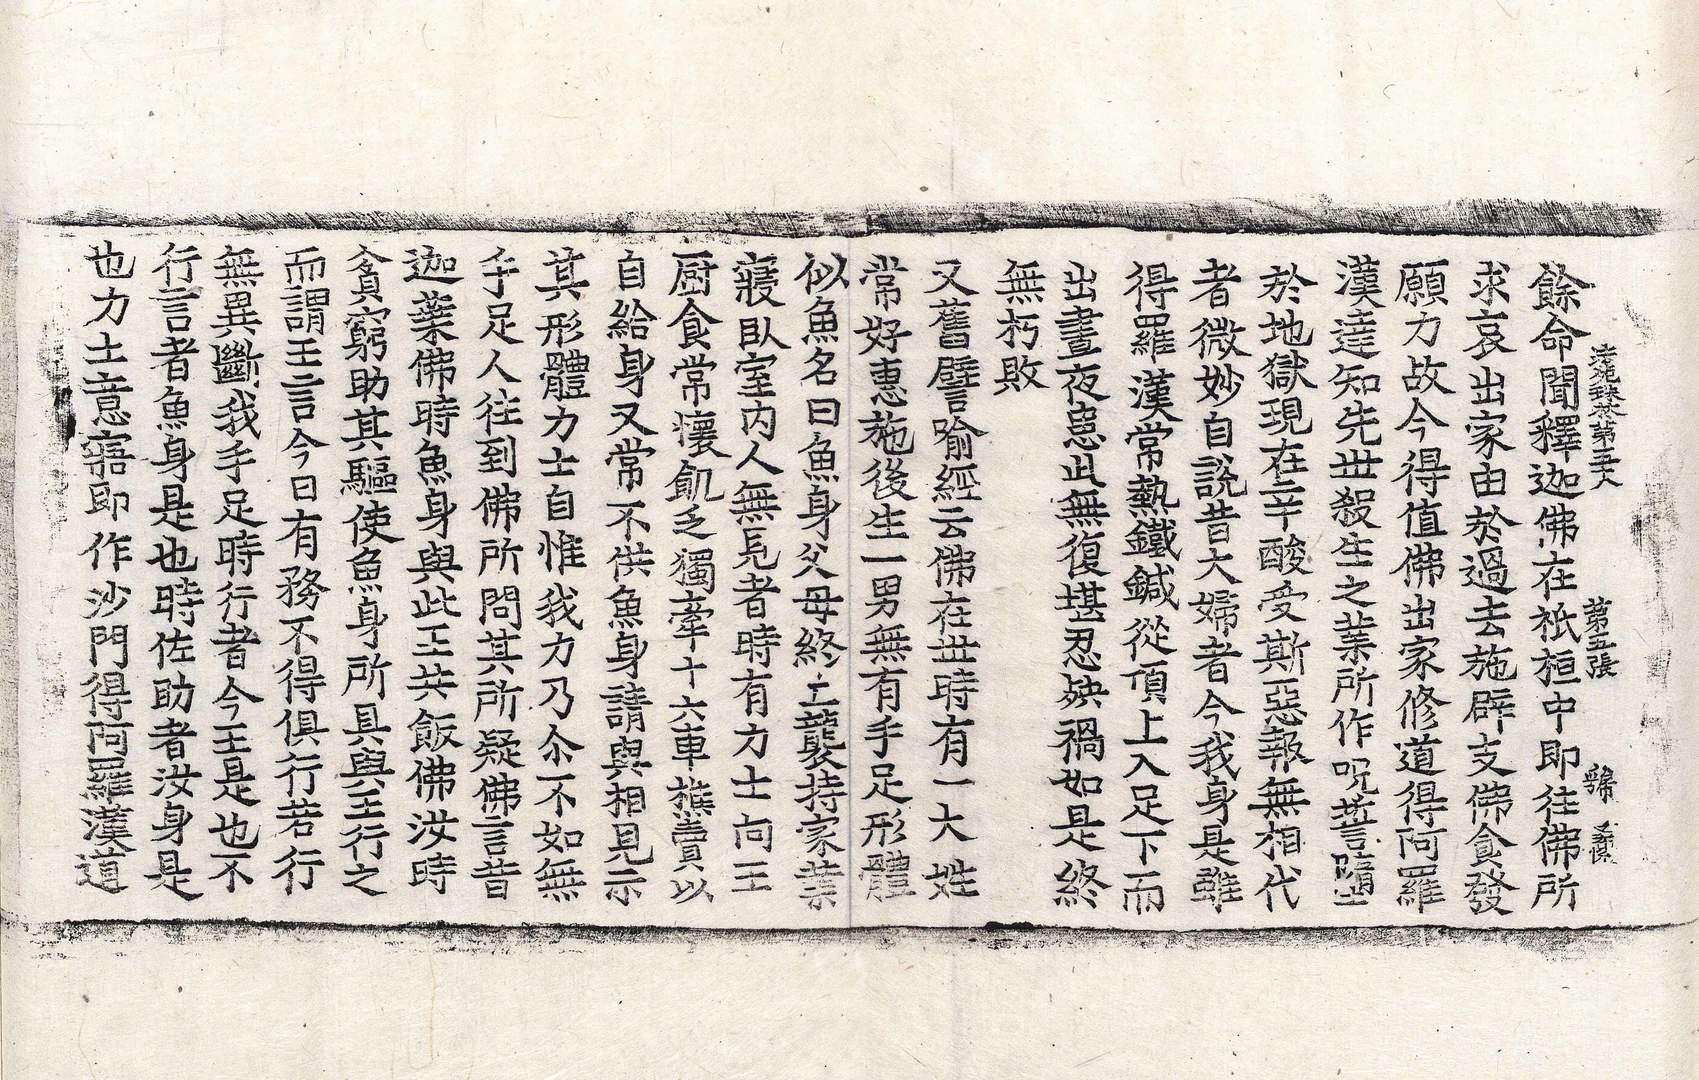 法苑珠林第五十八 第五張
餘命聞釋迦佛在祇桓中即往佛所
求哀出家由於過去施辟支佛食發
願力故今得值佛出家修道得阿羅
漢達知先世殺生之業所作呪誓墮
於地獄現在辛酸受斯惡報無相代
者微妙自說昔大婦者今我身是雖
得羅漢常熱鐵鍼從頂上入足下而
出晝夜患此無復堪忍殃禍如是終
無朽敗
又舊譬喻經云佛在世時有一大姓
常好惠施後生一男無有手足形體
似魚名曰魚身父母終亡襲持家業
寢臥室內人無見者時有力士向王
厨食常懷飢乏獨牽十六車樵賣以
自給身又常不供魚身請與相見示
其形體力士自惟我力乃尒不如無
手足人往到佛所問其所疑佛言昔
迦葉佛時魚身與此王共飯佛汝時
貪窮助其驅使魚身所具與王行之
而謂王言今日有務不得俱行若行
無異斷我手足時行者今王是也不
行言者魚身是也時佐助者汝身是
也力士意寤即作沙門得阿羅漢道